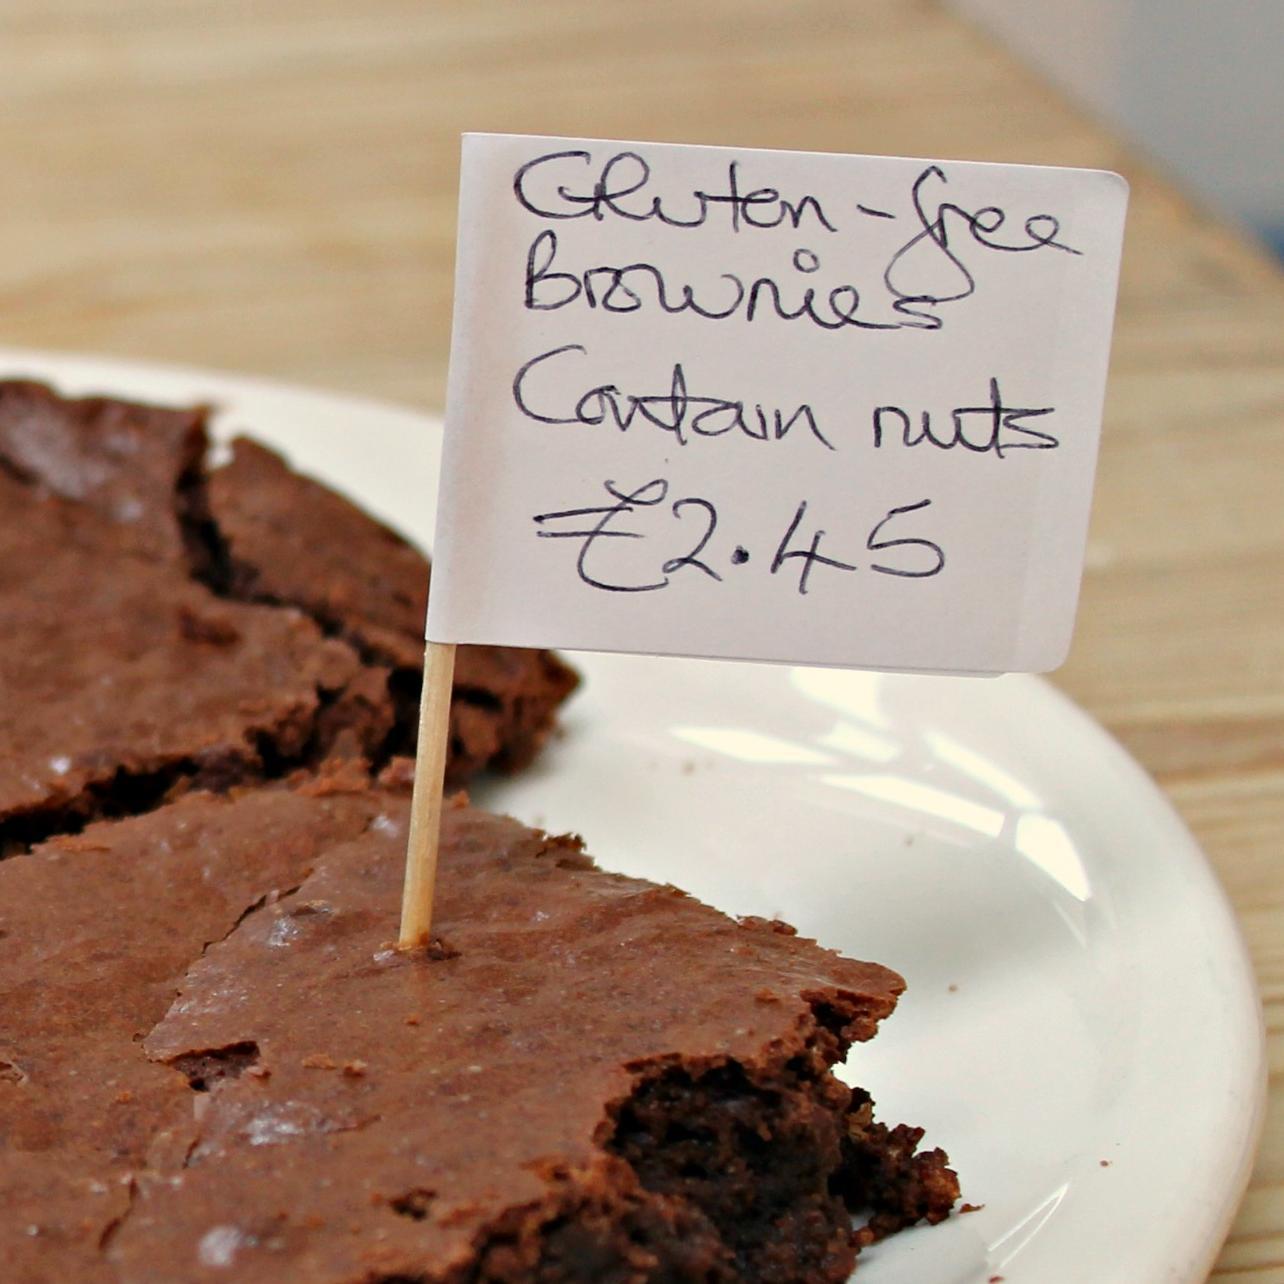 Gluten-free
Brownies
Contain nuts
£2.45